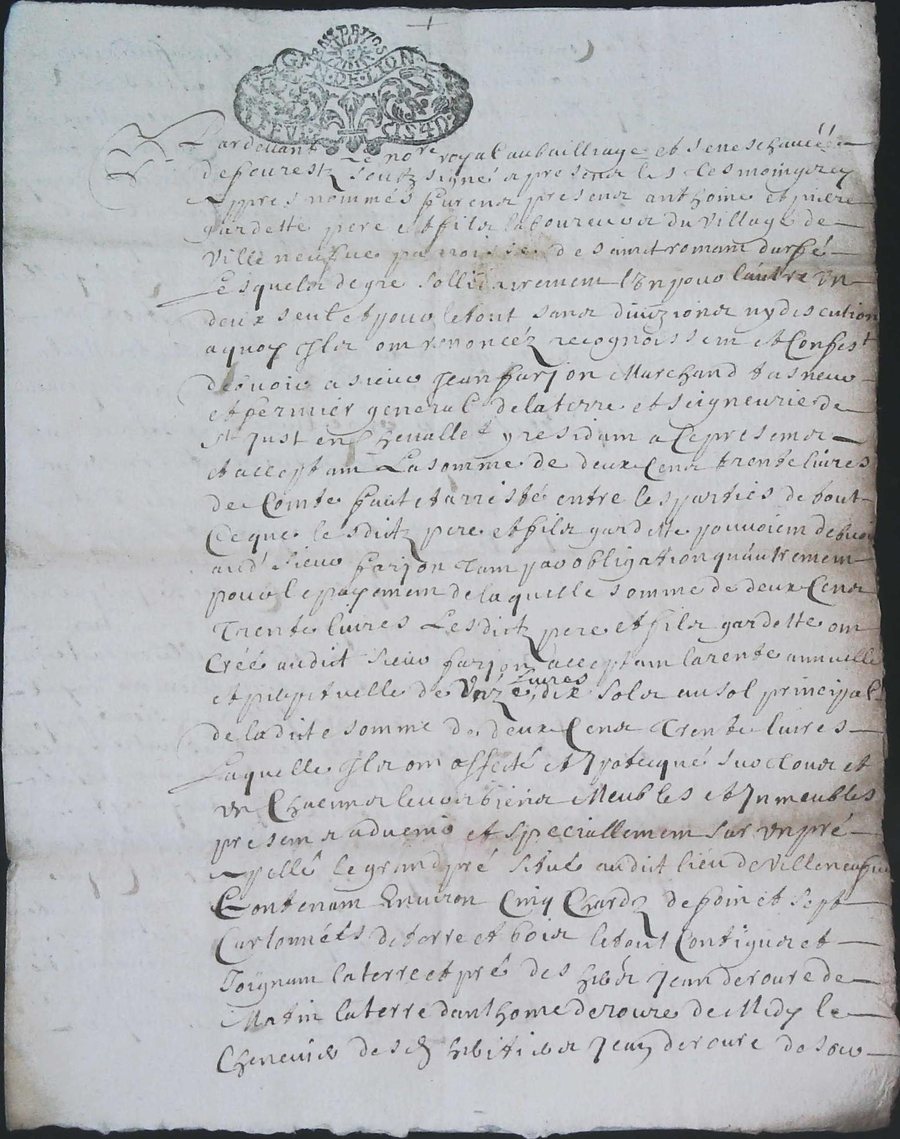 GEN. DE LYON
Pardevant Le nore royal au bailliage et seneschaucée
de fourestz soubz signé et presens les tesmoingz cy
appres nommés furens presens anthoine et pierre
gardette pere et filz laboureurs du village de
Ville neufve parroisse de sainct romain durfé
Lesquelz de gre sollidairement l'un pour l'autre un
deux seul et pour le tout sans divizions ny discution
a quoy Ilz ont renoncéz recognoissent et Confest
debvoir a sieur Jean farjon Marchand
et fermier general de la terre et seigneurie de
st Just en chevallet y residant a ce present
et acceptant La somme de deux Cens trente livres
de Comte faut et arresté entre les parties de tout
Ce que lesditz pere et filz gardette pouvoient debvoir
aud sieur farjon Tant par obligation qu'autrement
pour le payement de laquelle somme de deux Cens
Trente livres Lesditz pere et filz gardette ont
Créé audit sieur farjon acceptant la rente annuelle
et perpetuelle de unze livres dix solz au sol principal
de la dite somme de deux Cens Trente livres
Laquelle Ilz ont affecté et Ypotecqué sur tous et
un Chacuns leurs biens Meubles et Inmeubles
presens advenir et speciallement sur un pré
appellé le grand pré situé audit lieu de Villeneufve
Contenant Environ Cinq Chardz de foin et sept
Cartonnées de terre et bois le tout Contigus et
Joignant la terre et pré des Jean deroure de
Matin la terre danthoine deroure de Midy le
Chenevier de Jean deroure de soir